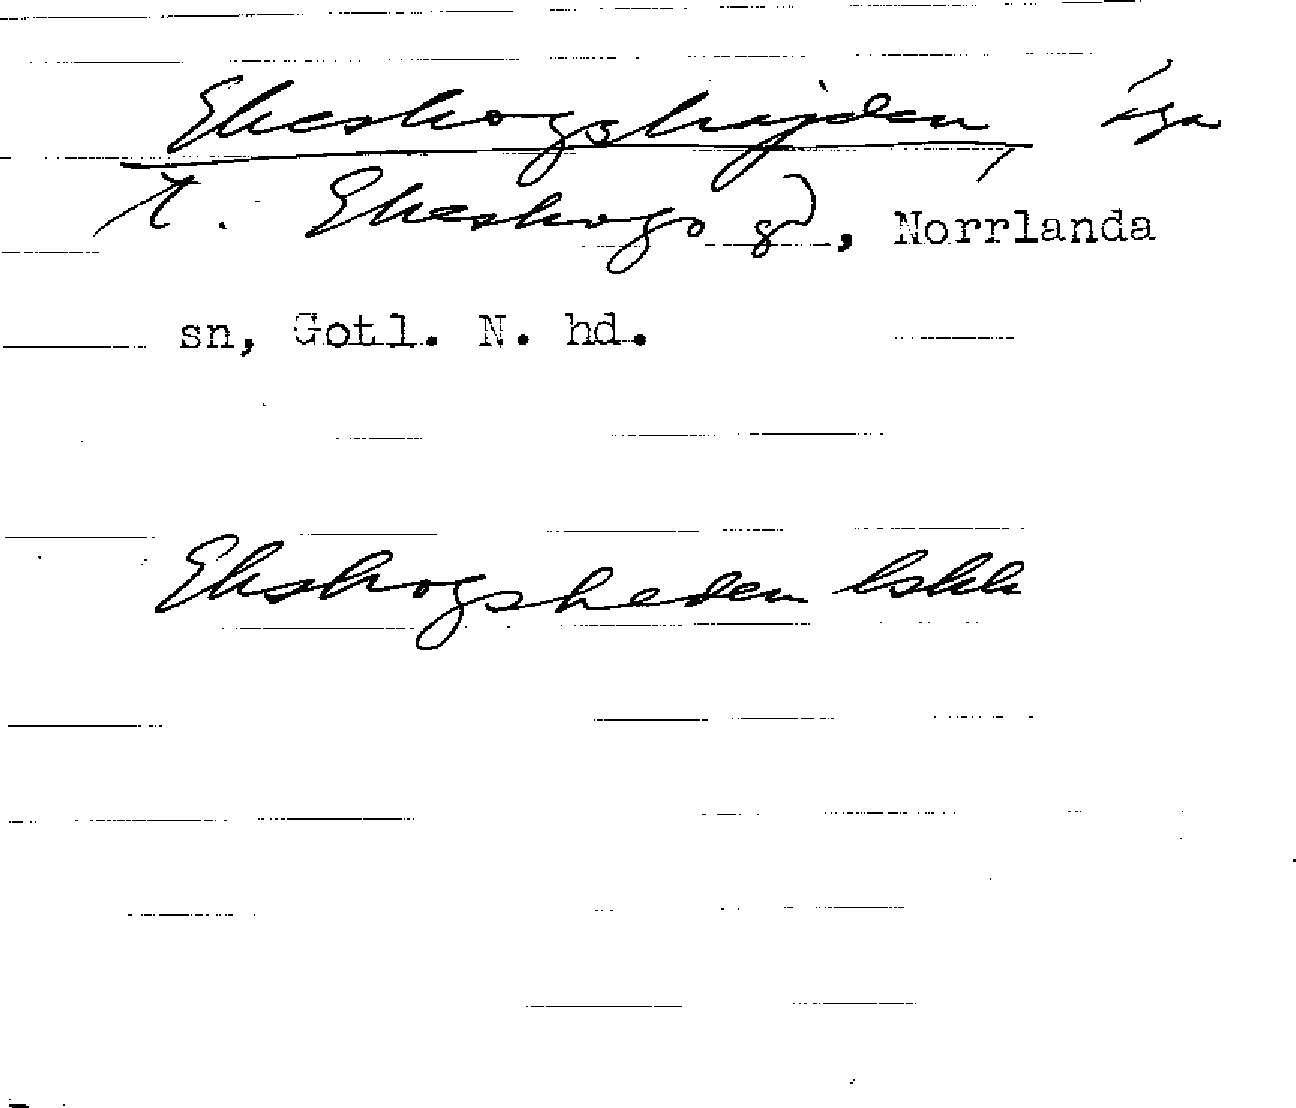 Ekeskogshöjden, äga
t. Ekeskogs gd, Norrlanda
sn, Gotl. N. hd.
Ekskogsheden lskk